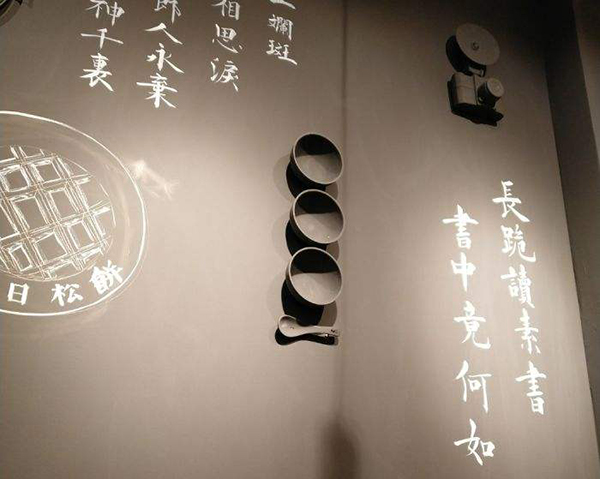 長跪讀素書
書中竟何如
斕斑
相思淚
人永棄
神千裏
日松餅